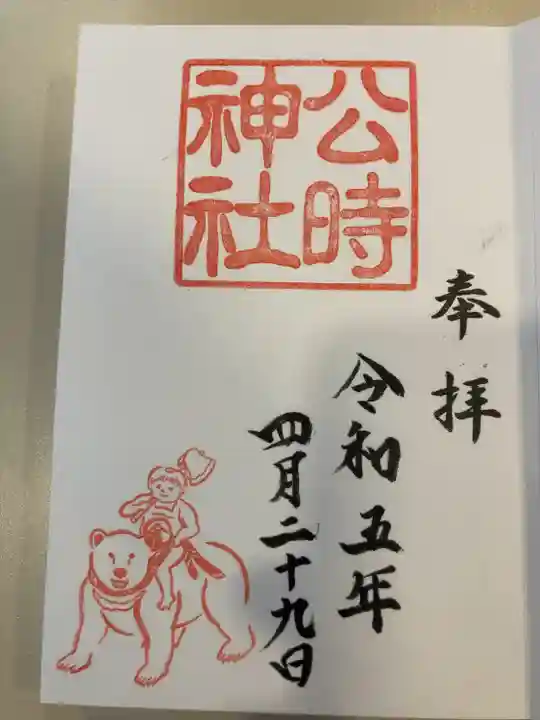 奉拝
公時
神社
令和五年
四月二十九日